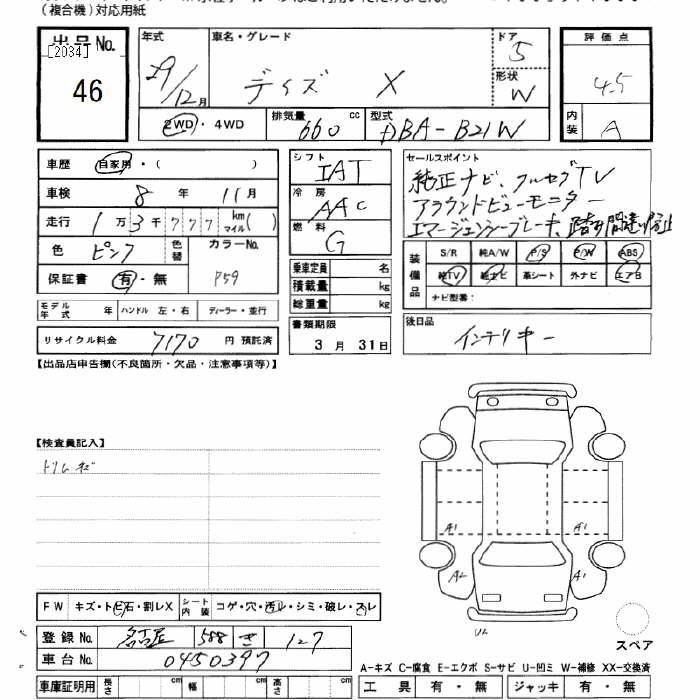 (複合機)対応用紙
出品No.
[2034]
46
年式
29/12月
車名・グレード
デイズ X
ドア
5
形状
W
評価点
4.5
内装
A
2WD・4WD
排気量 660 cc
型式 DBA-B21W
車歴 自家用・( )
車検 8年 11月
走行 1万3千777 km マイル( )
色 ピンク 色替
カラーNo. P59
保証書 有・無
シフト IAT
冷房 AAC
燃料 G
乗車定員 名
積載量 kg
総重量 kg
セールスポイント
純正ナビ、フルセグTV
アラウンドビューモニター
エマージェンシーブレーキ、踏み間違い防止
装備品
S/R 純A/W P/S P/W ABS
純TV 純ナビ 革シート 外ナビ エアB
ナビ型番:
モデル年式 年 ハンドル 左・右 ディーラー・並行
リサイクル料金 7170 円 預託済
書類期限
3月 31日
後日品
インテリキー
【出品店申告欄(不良箇所・欠品・注意事項等)】
【検査員記入】
トリムキズ
A1 A1
A2 A2
U2
スペア
FW キズ・トビ石・割レX
シート内装 コゲ・穴・汚レ・シミ・破レ・スレ
登録No. 名古屋 588 き 127
車台No. 0450397
A-キズ C-腐食 E-エクボ S-サビ U-凹ミ W-補修 XX-交換済
車庫証明用 長さ cm 幅 cm 高さ cm
工具 有・無 ジャッキ 有・無